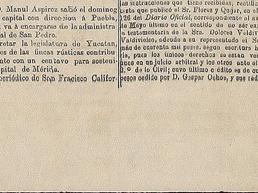 . Manuel Aspiroz salió el doming
capital con direccion á Puebla,
va á encargarse de la administra
al de San Pedro.
retar la legislatura de Yucatan,
es de las fincas rústicas contribu
nte con un centavo para sosteni
spital de Mérida.
periódico de San Francisco Califor
instrucciones que tiene recibidas, rectific
esto que publicó el Sr. Flores y Quijar, en el
26 del Diario Oficial, correspondiente al
de Mayo último en el sentido de que no es el
la testamentaría de la Sra. Dolores Valdiv
Valdivielso, adeude á su representado el S
de cuarenta mil pesos, segun escritura
, pues los únicos derechos se están
en un juicio arbitral y los otros ante el
1.º de lo Civil; cuyo último crédito es de cu
pesos cedido por D. Gaspar Ochoa, y sus réd